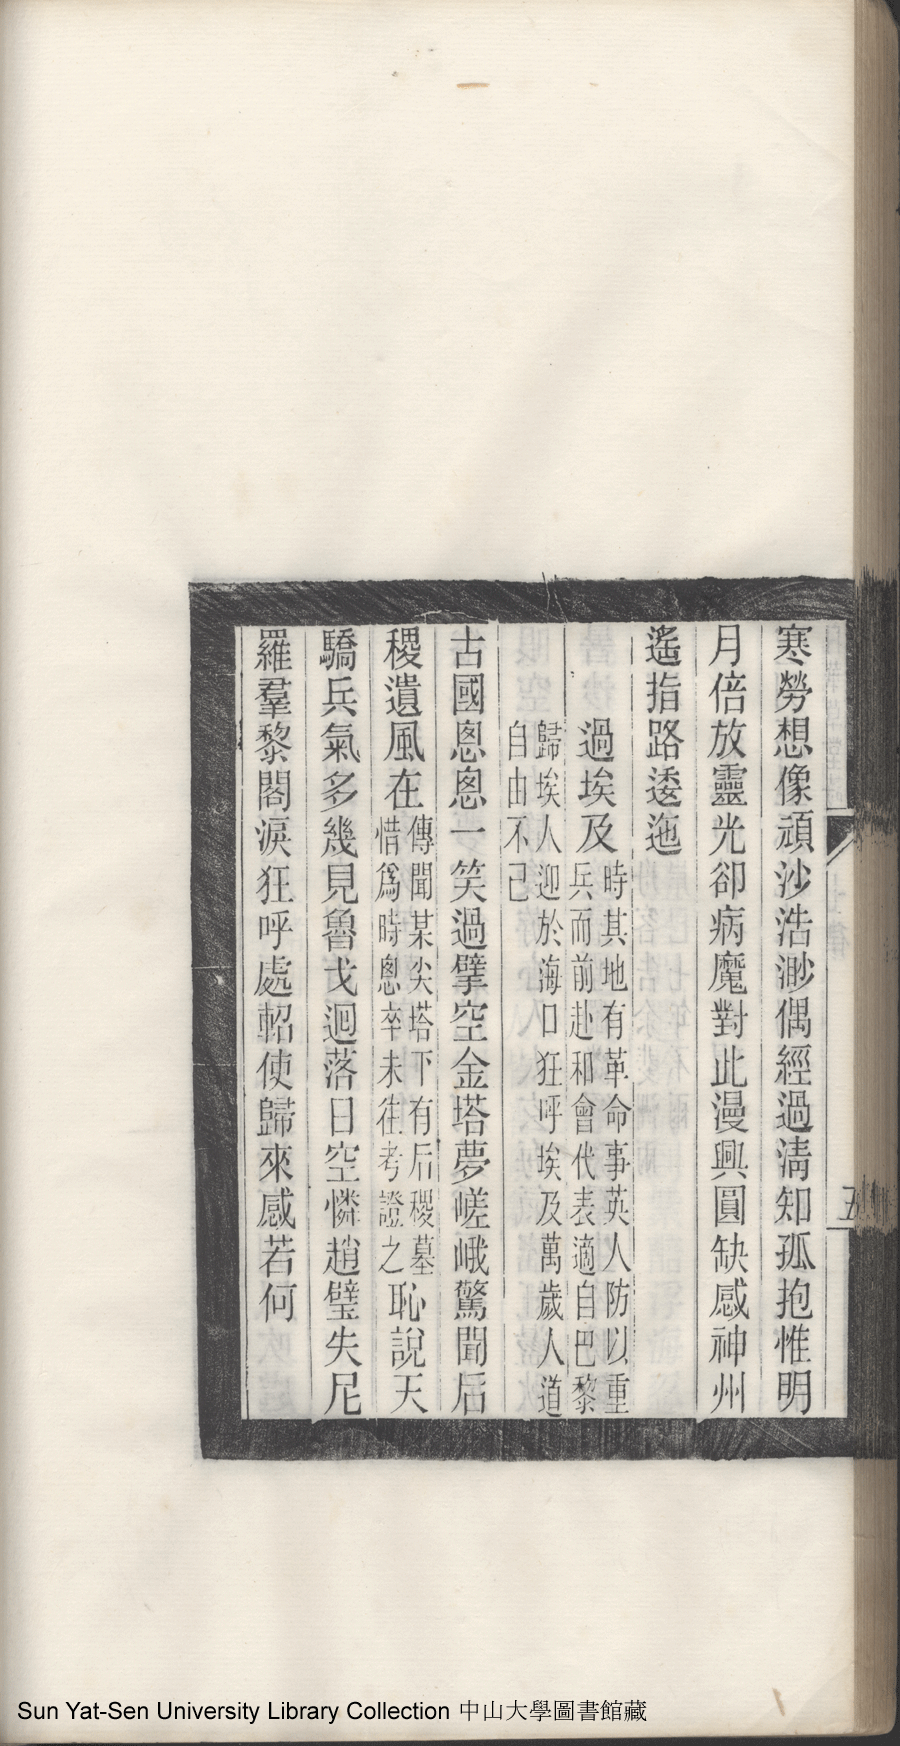 寒勞想像頑沙浩渺偶經過淸知孤抱惟明
月倍放靈光卻病魔對此漫興圓缺感神州
遙指路逶迤
過埃及
時其地有革命事英人防以重
兵而前赴和會代表適自巴黎
歸埃人迎於海口狂呼埃及萬歲人道
自由不已
古國悤悤一笑過擘空金塔夢嵯峨驚聞后
稷遺風在
傳聞某尖塔下有后稷墓
惜爲時悤卒未往考證之
恥說天
驕兵氣多幾見魯戈迴落日空憐趙璧失尼
羅羣黎閣淚狂呼處軺使歸來感若何
五
Sun Yat-Sen University Library Collection 中山大學圖書館藏